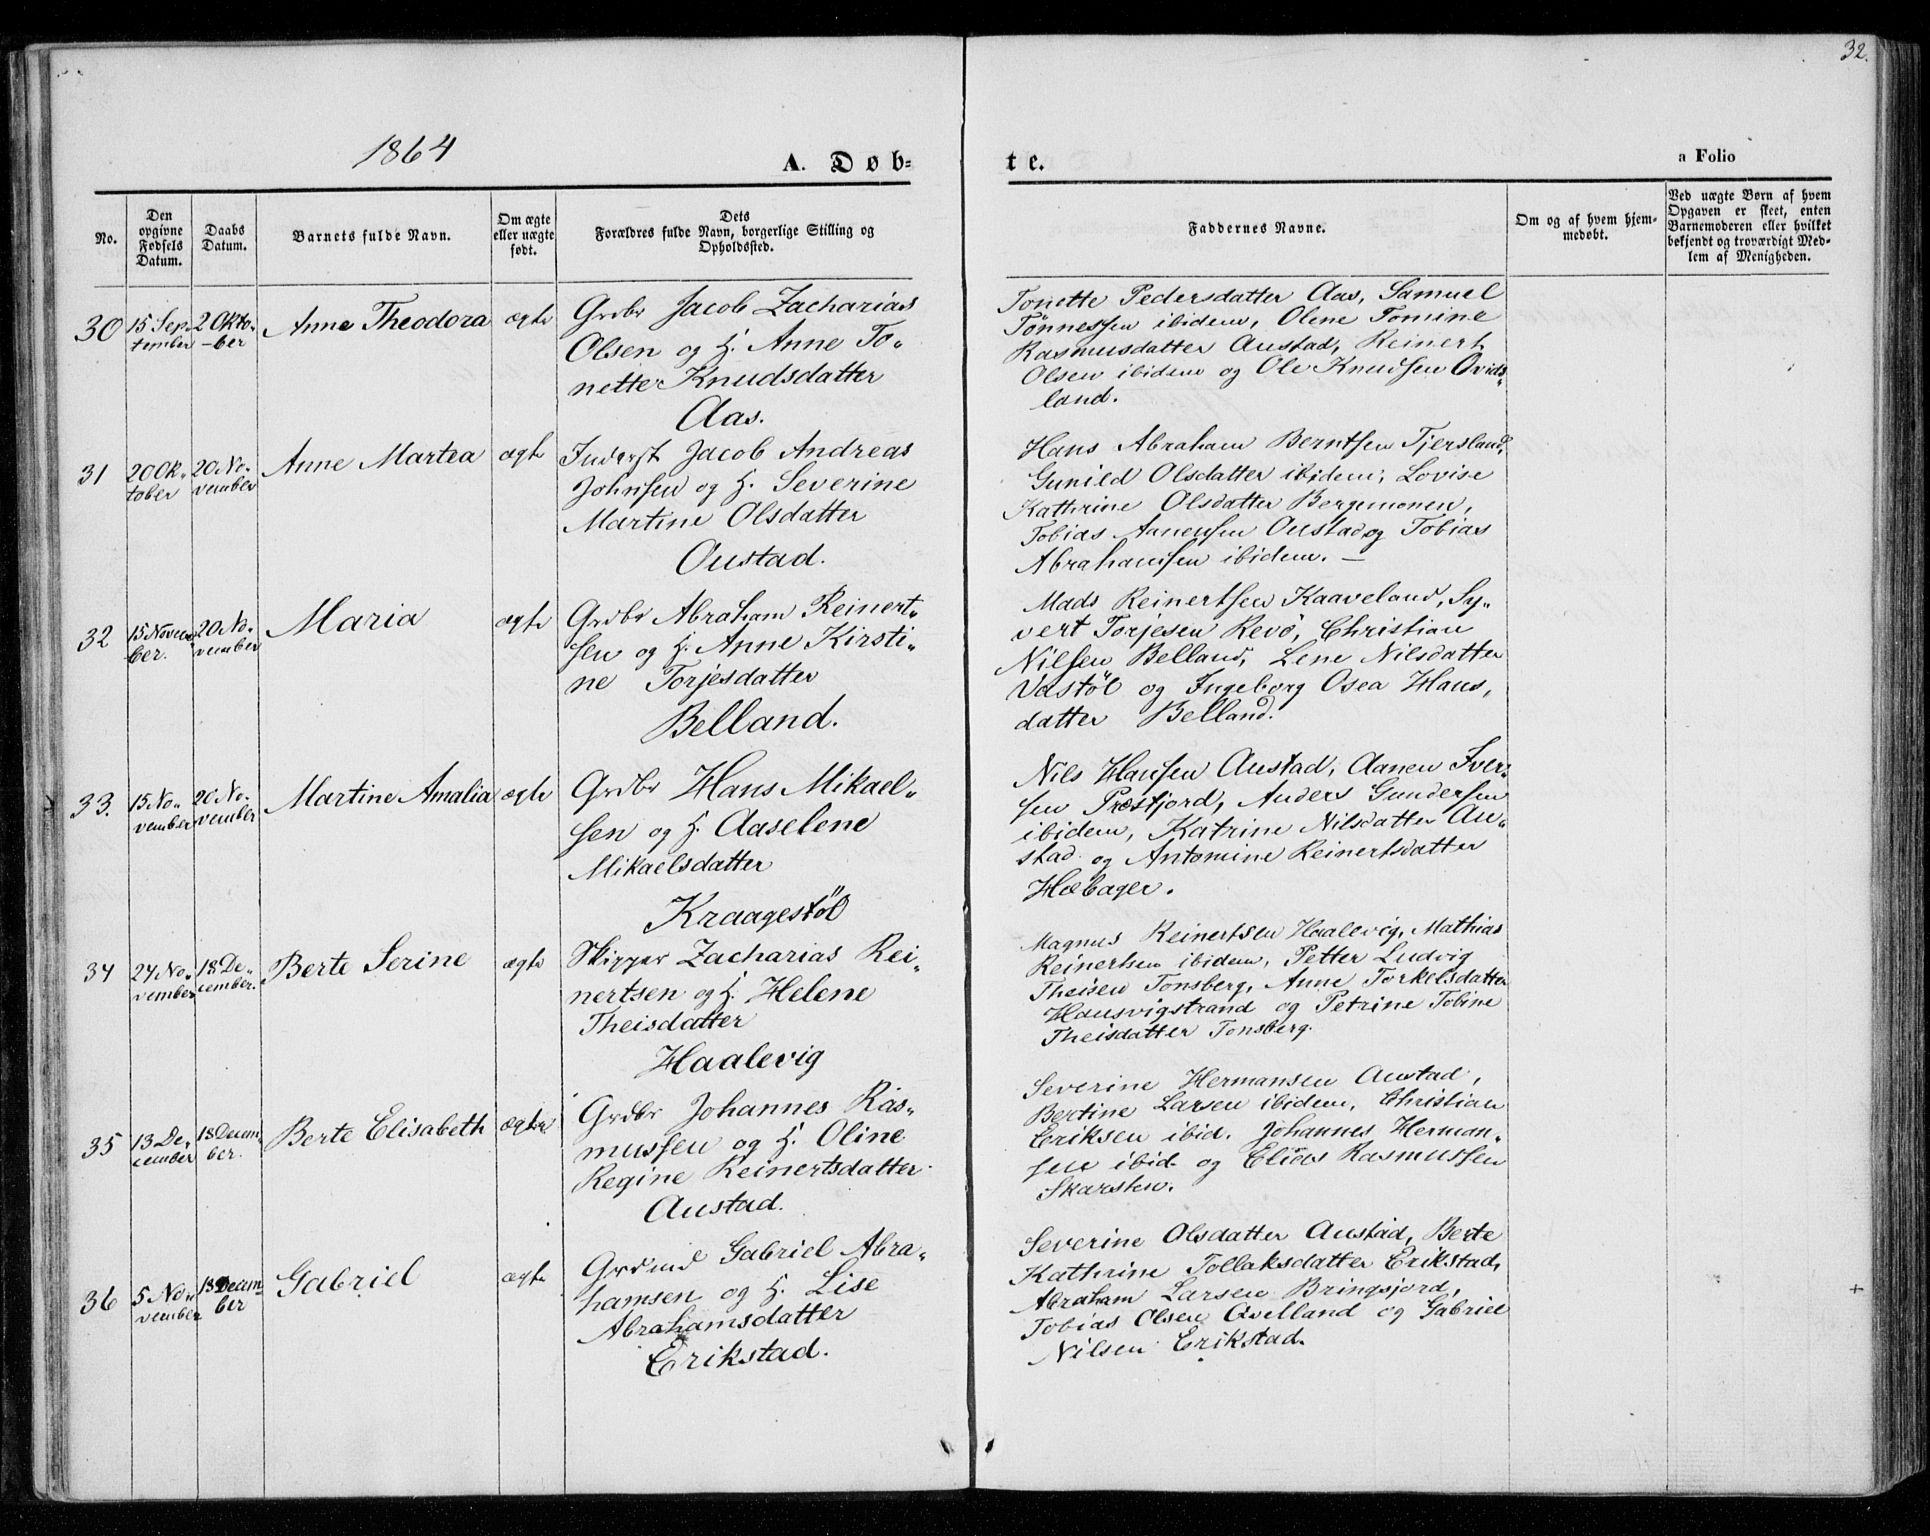 32.
1864
A. Døb-
te.
a Folio
No.
Den
opgivne
Fødsels
Datum.
Daabs
Datum.
Barnets fulde Navn.
Om ægte
eller uægte
født.
Dets
Forældres fulde Navn, borgerlige Stilling og
Opholdssted.
Faddernes Navne.
Om og af hvem hjem-
medøbt.
Ved uægte Børn af hvem
Opgaven er skeet, enten
Barnemoderen eller hvilket
bekjendt og troværdigt Med-
lem af Menigheden.
30
15 Sep-
tember
2 Okto-
-ber
Anne Theodora
ægte
Grdbr Jacob Zacharias
Olsen og H. Anne To-
nette Knudsdatter
Aas.
Tonette Pedersdatter Aas, Samuel
Tønnessen ibidem, Olene Tomine
Rasmusdatter Austad, Reinert
Olsen ibidem og Ole Knudsen Qvids-
land.
31
20 Ok-
tober
20 No-
vember
Anne Martea
ægte
Inderst Jacob Andreas
Johnsen og H. Severine
Martine Olsdatter
Oustad.
Hans Abraham Berntsen Tjersland,
Gunild Olsdatter ibidem, Lovise
Kathrine Olsdatter Bergemonen,
Tobias Aanensen Oustad og Tobias
Abrahamsen ibidem. —
32
15 Novem-
ber.
20 No-
vember
Maria
ægte
Grdbr Abraham Reinert-
sen og H. Anne Kirsti-
ne Torjesdatter
Belland.
Mads Reinertsen Kaaveland, Sy-
vert Torjesen Revö, Christian
Nilsen Belland, Lene Nilsdatter
Vastøl og Ingeborg Osea Hans-
datter Belland.
33.
15 No-
vember
20 No-
vember
Martine Amalia
ægte
Grdbr Hans Mikael-
sen og H. Aaselene
Mikaelsdatter
Kraagestöl
Nils Hansen Austad, Aanen Iver-
sen Præstjord, Anders Gundersen
ibidem, Katrine Nilsdatter Au-
stad og Antomine Reinertsdatter
Hæbager.
34
24 No-
vember
18 De-
cember.
Berte Serine
ægte
Skipper Zacharias Rei-
nertsen og H. Helene
Theisdatter
Haalevig
Magnus Reinertsen Haalevig, Mathias
Reinertsen ibidem, Petter Ludvig
Theisen Tonsberg, Anne Torkelsdatter
Hausvigstrand og Petrine Tobine
Theisdatter Tonsberg.
35
13 De-
cember
18 Decem-
ber.
Berte Elisabeth
ægte
Grdbr Johannes Ras-
mussen og H. Oline
Regine Reinertsdatter
Austad.
Severine Hermansen Austad,
Bertine Larsen ibidem, Christian
Eriksen ibid. Johannes Herman-
sen ibid. og Elias Rasmussen
Skarsten.
36
5 No-
vember
18 Decem-
ber
Gabriel
ægte
Grdmd Gabriel Abra-
hamsen og H. Lise
Abrahamsdatter
Erikstad.
Severine Olsdatter Austad, Berte
Kathrine Tollaksdatter Erikstad,
Abraham Larsen Bringsjord,
Tobias Olsen Qvelland og Gabriel
Nilsen Erikstad.
+